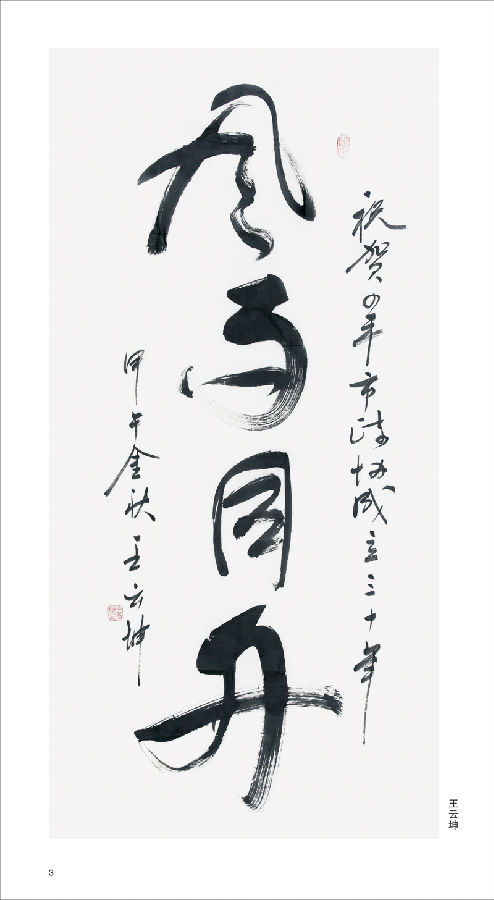 祝贺四平市政协成立三十年
风雨同舟
甲午金秋 王云坤
王云坤
3